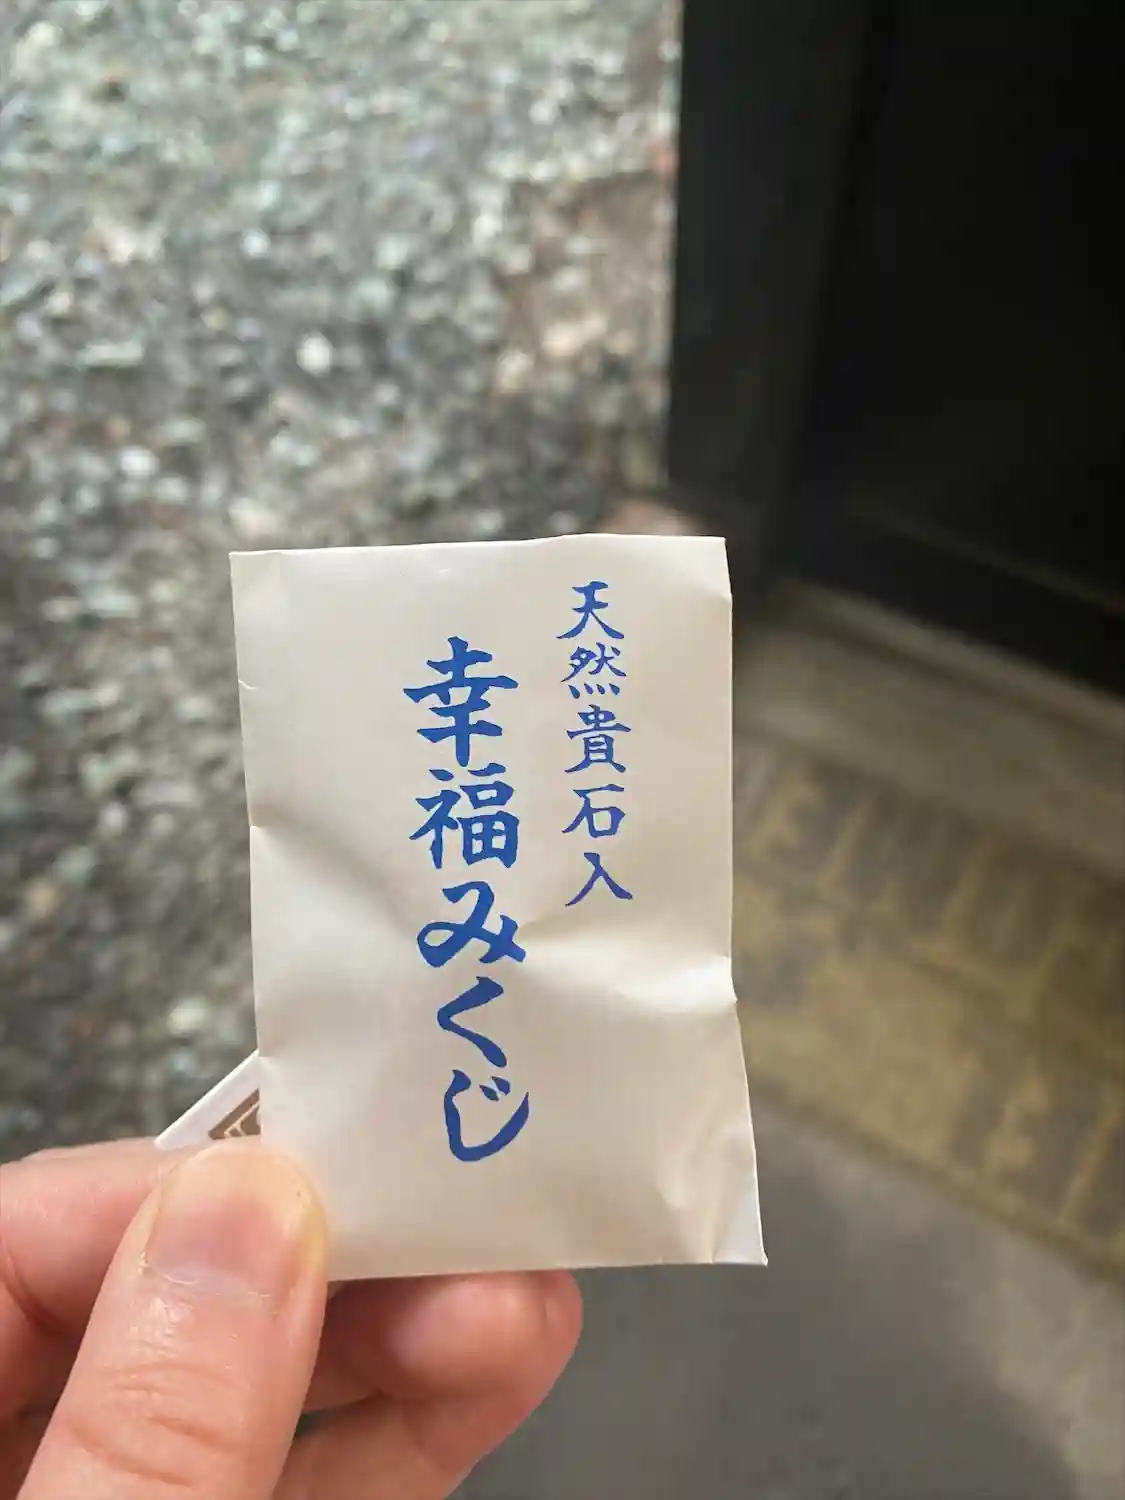 天然貴石入
幸福みくじ